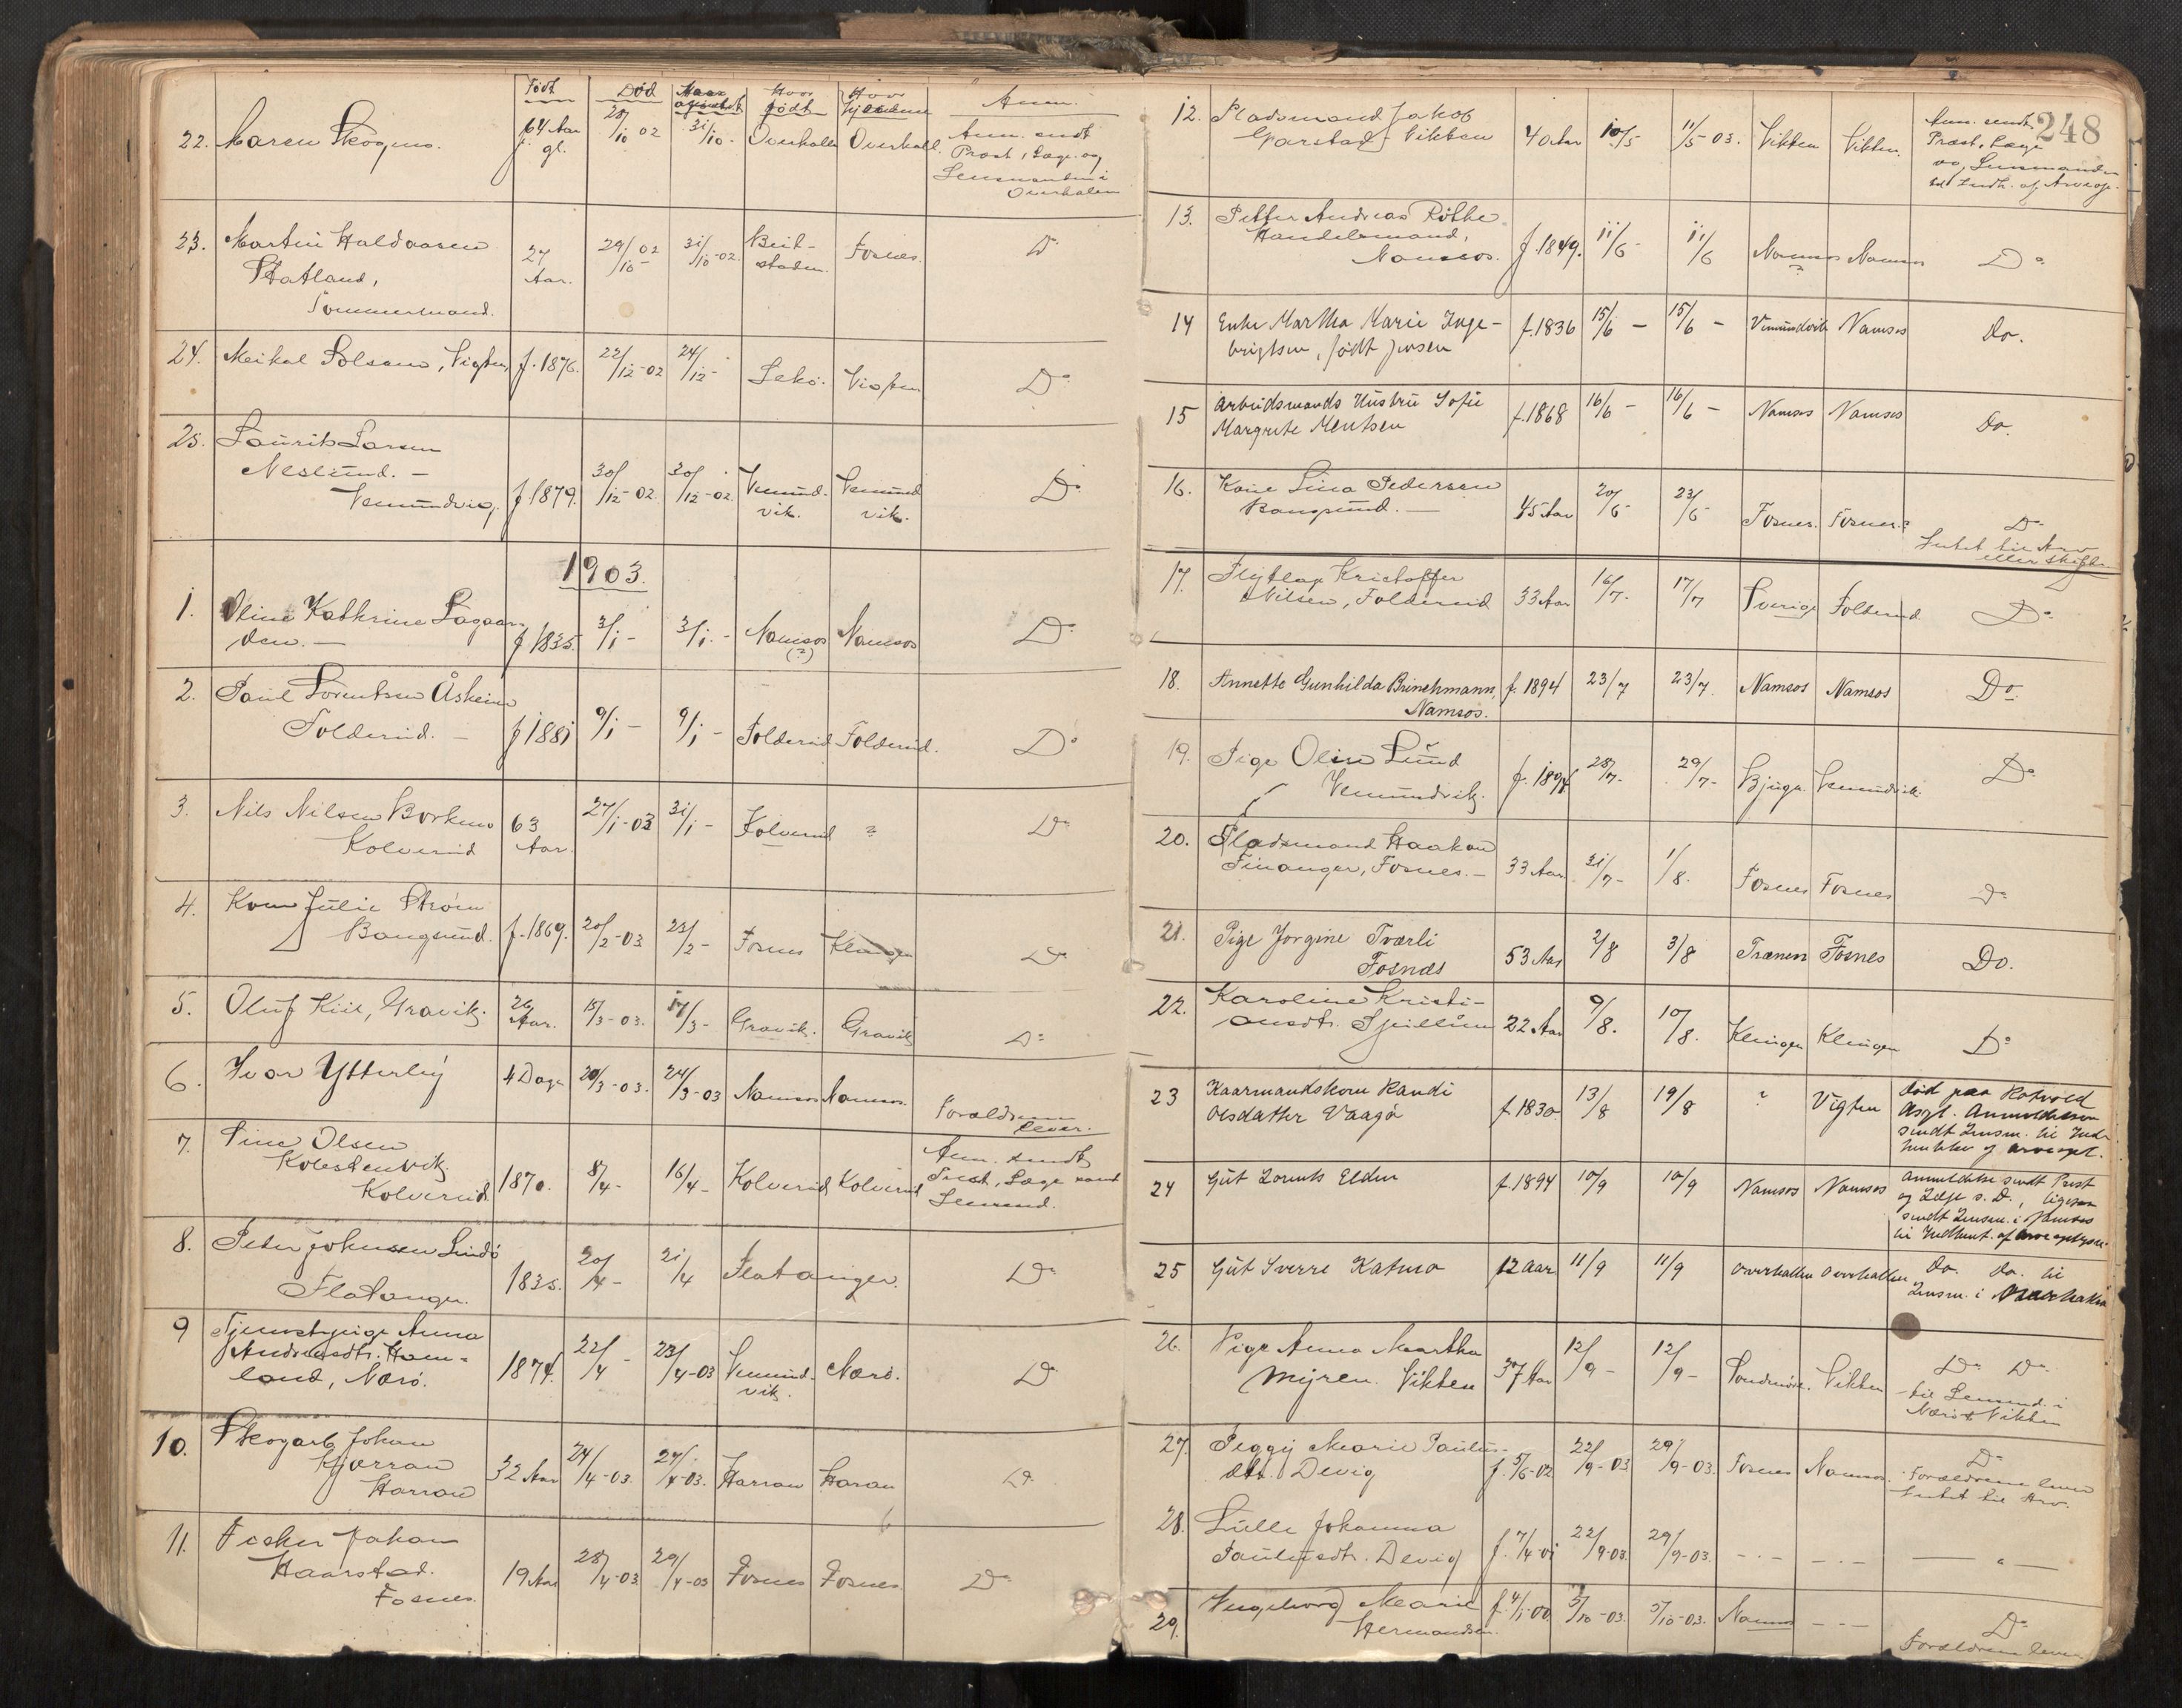 Født Død Hvor født Hvor hjemme Anm.
22. Maren Skogmo. 64 Aar gl. 28/10 02 31/10 - Overhallen Overhall. Anm. sendt
Præst, Læge og
Lensmanden i
Overhallen
23. Martin Haldaasen 27 Aar. 29/10 02 31/10-02. Beit-staden. Fosnes. Do
Statland,
Tømmermand.
24. Meikal Solsem, Vigten f. 1876. 22/12-02 24/12- Lekø. Vigten Do
25. Laurits Larsen
Neslund. -
Vemundvig. f 1879. 30/12-02. 30/12-02. Vemund-vik. Vemund vik. Do
1903.
1. Oline Kathrine Lagaar-
den. - f 1835. 3/1 - 3/1. - Namsos (?) Namsos Do
2. Paul Lorentsen Åsheim
Foldereid. - f 1881 9/1 - 9/1 - Foldereid Foldereid. Do
3. Nils Nilsen Borkmo 63 Aar. 27/1-03 31/1 - Kolvereid ? Do
Kolvereid
4. Kone Julie Strøm
Bangsund. f. 1869. 20/2-03 23/2- Fosnes Klingen Do
5. Oluf Kiil, Gravik. 26 Aar. 15/3-03. 17/3- Gravik. Gravik Do
6. Ivar Ytterby 4 Dage 20/3-03. 24/3-03 Namsos Namsos. Forældrene
lever.
7. Sine Olsen
Kolvereid 1870. 8/4- 16/4- Kolvereid Kolvereid Anm. sendt
Præst, Læge samt
Lensmd.
8. Peter Johnsen Lindø
Flatanger. 1835. 20/4- 21/4 Flatanger. Do
9 Tjenestepige Anna
Andreasdtr. Hom-
land, Nærø. 1874. 22/4 - 23/4-03 Vemund-vik. Nærø. Do
10. Skogarb. Johan
Kjærran
Harran 32 Aar 24/4-03. 27/4-03. Harran Haran Do
11. Fisker Johan
Haarstad.
Fosnes. 19 Aar 28/4-03 29/4-03 Fosnes Fosnes. Do
248
12. Pladsmand Jakob
Garstad, Vikten 40 Aar 10/5 11/5-03. Vikten Vikten. Anm. sendt
Præst, Læge
og Lensmanden
til Indh. af Arveop.
13. Petter Andreas Röthe
Handelsmand,
Namsos. f 1849. 11/6 - 11/6 Namsos ? Namsos Do
14 Enke Martha Marie Inge-
brigtsen, født Jensen f. 1836 15/6 - 15/6 - Vemundvik Namsos Do.
15 Arbeidsmands Hustru Sofie
Margrete Mentsen f. 1868 16/6 - 16/6 - Namsos Namsos Do.
16. Kone Lina Pedersen
Bangsund. - 45 Aar 20/6- 23/6 Fosnes. Fosnes.? Do
Intet til Arv
eller skifte
17. Flytlap Kristoffer
Nilsen, Foldereid 33 Aar 16/7- 17/7 Sverige Foldereid. Do
18. Annette Gunhilda Brinchmann, f. 1894 23/7 23/7. Namsos Namsos Do.
Namsos.
19. Pige Oline Lund
Vemundvik. 28/7- 29/7- Bjugn Vemundvik. Do
20. Pladsmand Haakon
Finanger, Fosnes. - 33 Aar 31/7- 1/8. Fosnes Fosnes Do
21. Pige Jorgine Tværli
Fosnæs 53 Aar 2/8 3/8 Trænen Fosnes Do.
22. Karoline Kristi-
ansdtr. Spillum 22 Aar 9/8. 10/8. Klingen Klingen Do
23 Kaarmandskone Randi
Olsdatter Vaagø f. 1830. 13/8 19/8 ? Vigten død paa Rotvold
Asyl. Anmeldelsen
sendt Lensm. til Ind-
hentelse af arveopl.
24 Gut Lorents Elden f. 1894 10/9 10/9 Namsos Namsos anmeldelse sendt Præst
og Læge s. D., ligesom
sendt Lensm. i Namsos
til Indhent. af arveoplysn.
25 Gut Sverre Katmo 12 aar 11/9 11/9 Overhallen Overhallen do. do. til
Lensm. i Overhallen
26. Pige Anna Martha
Myren. Vikten 37 Aar 12/9 - 12/9 - Søndmøre. Vikten Do Do
til Lensmd. i
Nærø & Vikten
27. Peggy Marie Paulus-
dtr. Devig f. 5/6-02 22/9-03 29/9-03. Fosnes Namsos. Do
Forældrene lever
Intet til Arv.
28. Lulle Johanna
Paulusdtr. Devig f. 7/4-01 22/9-03. 29/9-03. - . - - . - - " -
29. Ingeborg Marie
Hermandsen. f. 4/1-00 3/10-03. 5/10-03. Namsos - . - Do
Forældrene lever